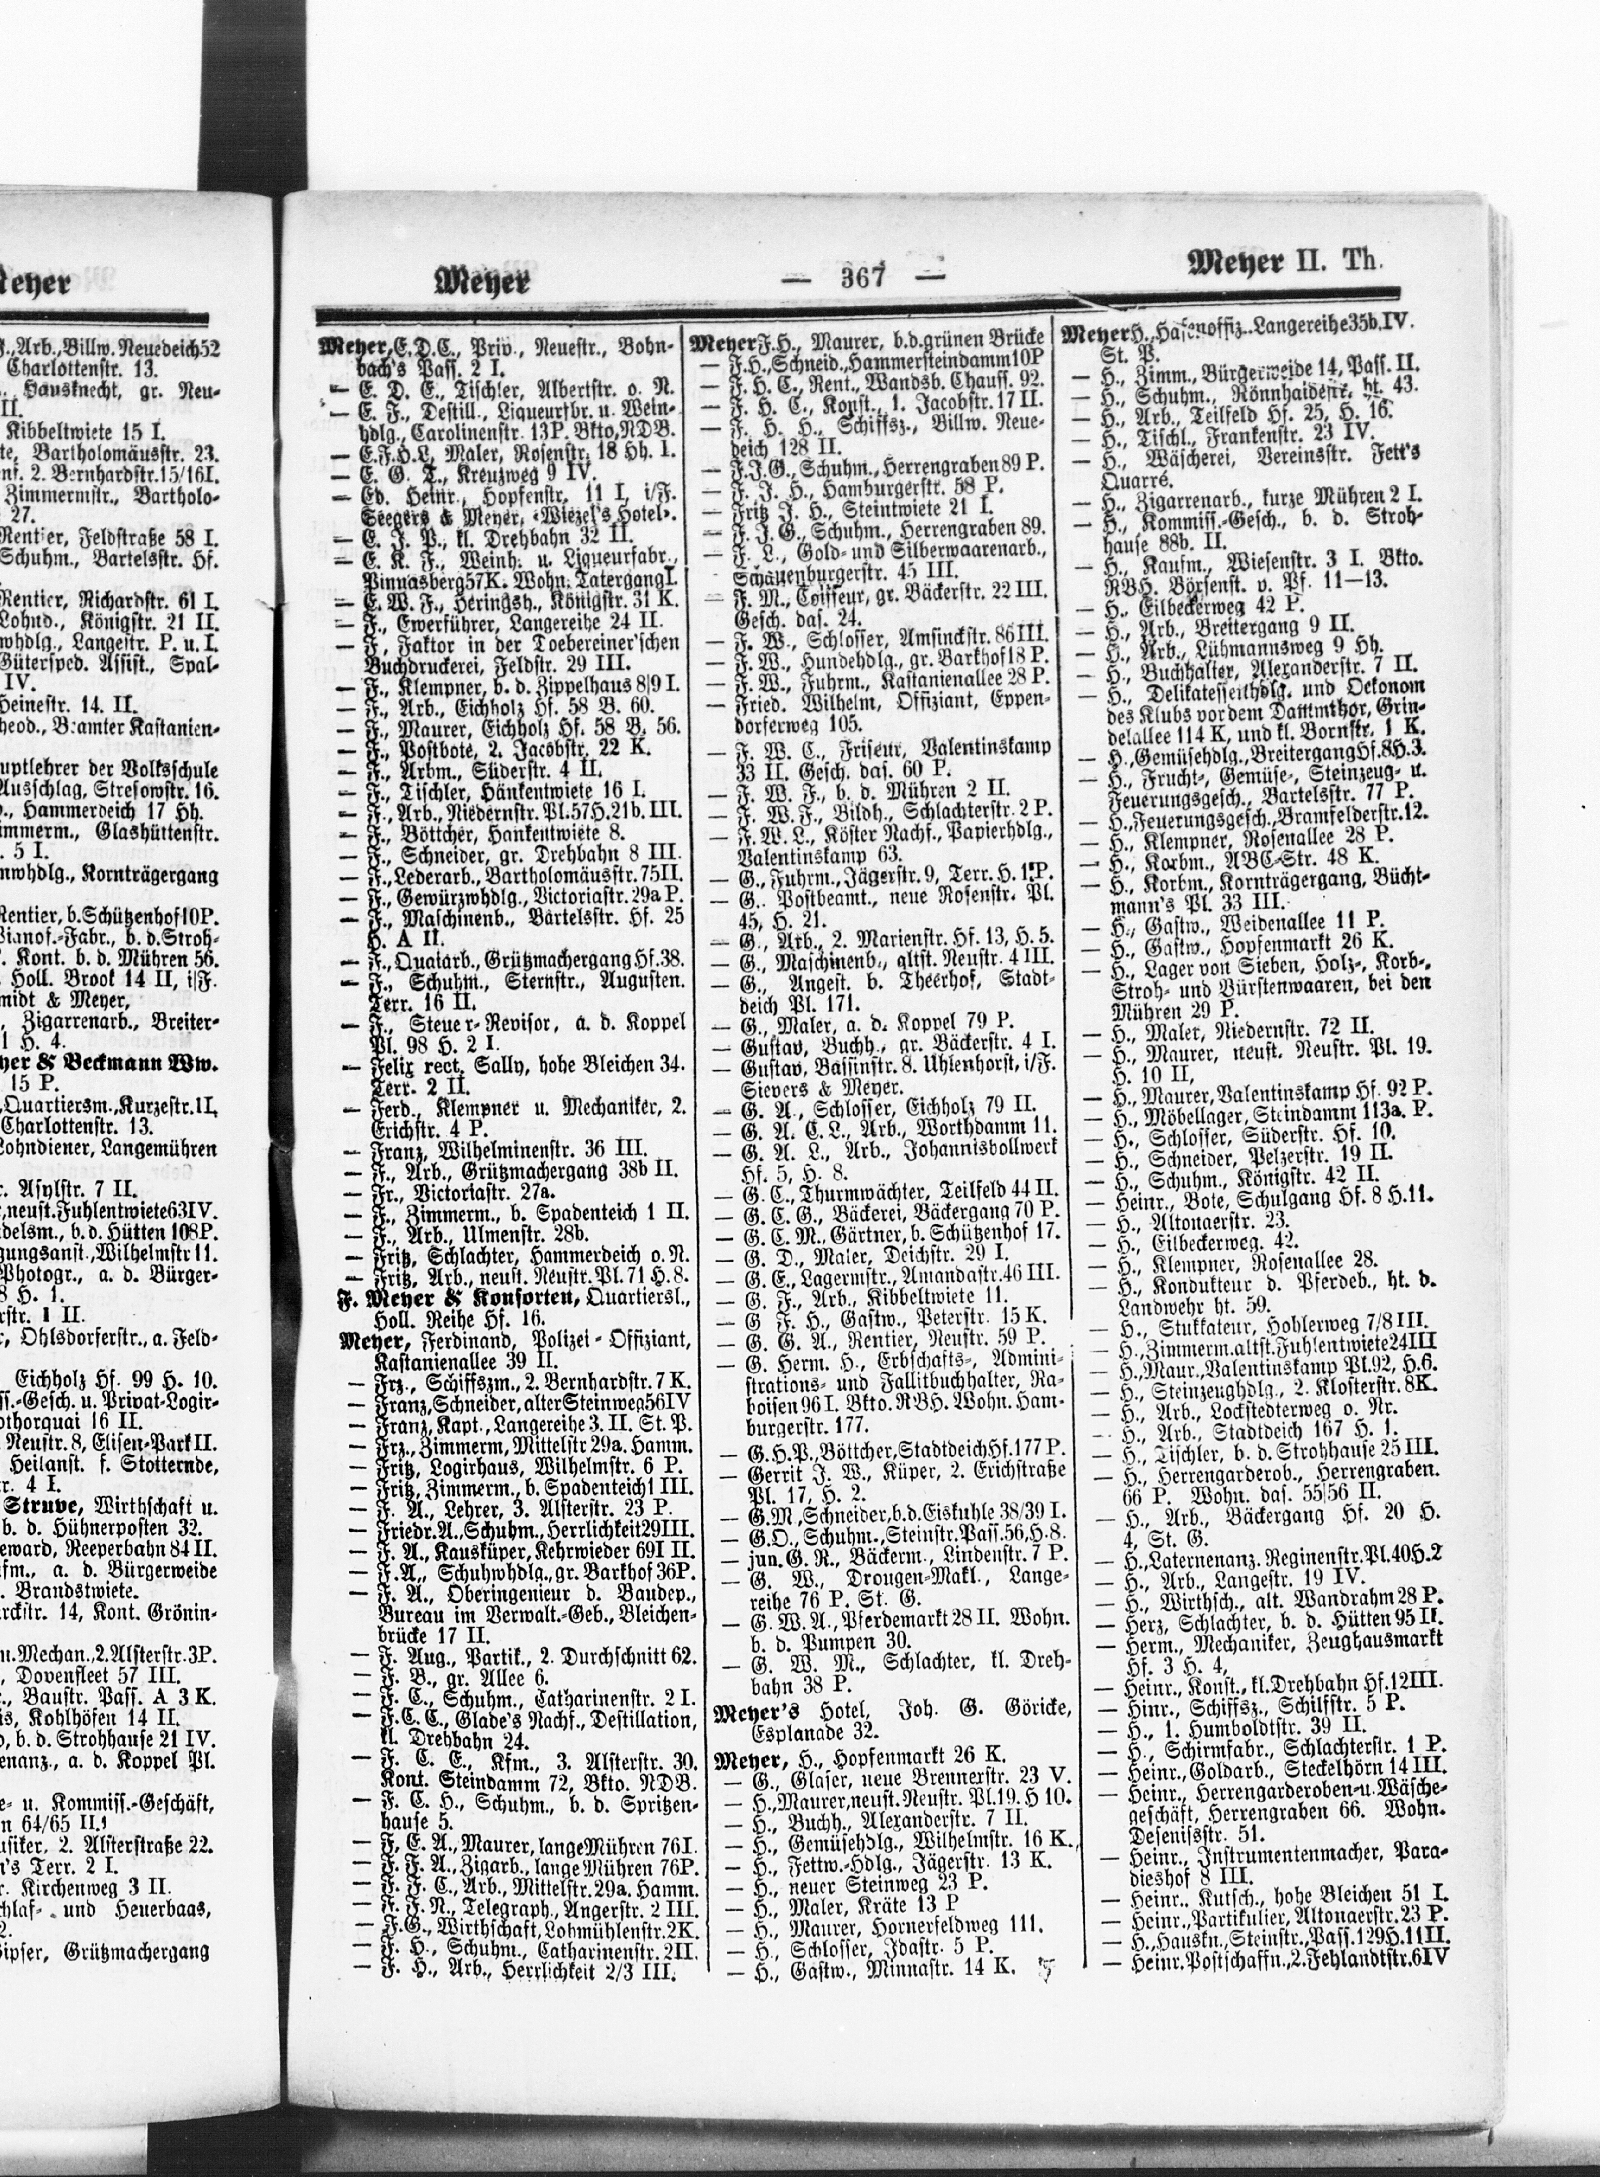 Meyer
J., Arb., Billw. Neuedeich 52
Charlottenstr. 13.
Hausknecht, gr. Neu-
II.
Kibbeltwiete 15 I.
te, Bartholomäusstr. 23.
2. Bernhardstr. 15/16 I.
Zimmermstr., Bartholo-
27.
Rentier, Feldstraße 58 I.
Schuhm., Bartelsstr. Hf.
Rentier, Richardstr. 61 I.
Lohnd., Königstr. 21 II.
whdlg., Langestr. P. u. I.
Gütersped. Assist., Spal-
IV.
Heinestr. 14. II.
heod., Beamter Kastanien-
uptlehrer der Volksschule
Ausschlag, Stresowstr. 16.
Hammerdeich 17 Hh.
immerm., Glashüttenstr.
5 I.
nwhdlg., Kornträgergang
Rentier, b. Schützenhof 10 P.
Pianof.-Fabr., b. d. Stroh-
Kont. b. d. Mühren 56.
Holl. Brook 14 II, i/F.
midt & Meyer,
Zigarrenarb., Breiter-
1 H. 4.
yer & Beckmann Ww.
15 P.
Quartiersm., Kurzestr. 1 I,
Charlottenstr. 13.
Lohndiener, Langemühren
Asylstr. 7 II.
neust. Fuhlentwiete 63 IV.
delsm., b. d. Hütten 108 P.
gungsanst., Wilhelmstr 11.
Photogr., a. d. Bürger-
8 H. 1.
rstr. 1 II.
Ohlsdorferstr., a. Feld-
Eichholz Hf. 99 H. 10.
ss.-Gesch. u. Privat-Logir-
othorquai 16 II.
Neustr. 8, Elisen-Park II.
Heilanst. f. Stotternde,
r. 4 I.
Struve, Wirthschaft u.
b. d. Hühnerposten 32.
eward, Reeperbahn 84 II.
fm., a. d. Bürgerweide
Brandstwiete.
rckstr. 14, Kont. Grönin-
u. Mechan., 2. Alsterstr. 3 P.
Dovenfleet 57 III.
Baustr. Pass. A 3 K.
is, Kohlhöfen 14 II.
b. d. Strohhause 21 IV.
enanz., a. d. Koppel Pl.
e- u. Kommiss.-Geschäft,
n 64/65 II.
usiker, 2. Alsterstraße 22.
n's Terr. 2 I.
Kirchenweg 3 II.
chlaf- und Heuerbaas,
2.
Gipser, Grützmachergang
Meyer — 367 — Meyer II. Th.
Meyer, E. D. C., Priv., Neuestr., Bohn-
bach's Pass. 2 I.
— E. D. E., Tischler, Albertstr. o. N.
— E. F., Destill., Liqueurfbr. u. Wein-
hdlg., Carolinenstr. 13 P. Bkto. NDB.
— E. F. H. L, Maler, Rosenstr. 18 Hh. I.
— E. G. T., Kreuzweg 9 IV.
— Ed. Heinr., Hopfenstr. 11 I, i/F.
Seegers & Meyer, «Wiezel's Hotel».
— E. J. P., kl. Drehbahn 32 II.
— E. K. F., Weinh. u. Liqueurfabr.,
Pinnasberg 57 K. Wohn. Tatergang I.
— E. W. F., Heringsh., Königstr. 31 K.
— F., Ewerführer, Langereihe 24 II.
— F., Faktor in der Toebereiner'schen
Buchdruckerei, Feldstr. 29 III.
— F., Klempner, b. d. Zippelhaus 8/9 I.
— F., Arb., Eichholz Hf. 58 B. 60.
— F., Maurer, Eichholz Hf. 58 B. 56.
— F., Postbote, 2. Jacobstr. 22 K.
— F., Arbm., Süderstr. 4 II.
— F., Tischler, Hänkentwiete 16 I.
— F., Arb., Niedernstr. Pl. 57 H. 21b. III.
— F., Böttcher, Hankentwiete 8.
— F., Schneider, gr. Drehbahn 8 III.
— F., Lederarb., Bartholomäusstr. 75 II.
— F., Gewürzwhdlg., Victoriastr. 29a P.
— F., Maschinenb., Bartelsstr. Hf. 25
H. A II.
— F., Quaiarb., Grützmachergang Hf. 38.
— F., Schuhm., Sternstr., Augusten.
Terr. 16 II.
— F., Steuer-Revisor, a. d. Koppel
Pl. 98 H. 2 I.
— Felix rect. Sally, hohe Bleichen 34.
Terr. 2 II.
— Ferd., Klempner u. Mechaniker, 2.
Erichstr. 4 P.
— Franz, Wilhelminenstr. 36 III.
— F., Arb., Grützmachergang 38b II.
— Fr., Victoriastr. 27a.
— F., Zimmerm., b. Spadenteich 1 II.
— F., Arb., Ulmenstr. 28b.
— Fritz, Schlachter, Hammerdeich o. N.
— Fritz, Arb., neust. Neustr. Pl. 71 H. 8.
F. Meyer & Konsorten, Quartiersl.,
Holl. Reihe Hf. 16.
Meyer, Ferdinand, Polizei-Offiziant,
Kastanienallee 39 II.
— Frz., Schiffszm., 2. Bernhardstr. 7 K.
— Franz, Schneider, alter Steinweg 56 IV
— Franz, Kapt., Langereihe 3. II. St. P.
— Frz., Zimmerm, Mittelstr 29a. Hamm.
— Fritz, Logirhaus, Wilhelmstr. 6 P.
— Fritz, Zimmerm., b. Spadenteich 1 III.
— F. A., Lehrer, 3. Alsterstr. 23 P.
— Friedr. A., Schuhm., Herrlichkeit 29 III.
— F. A., Hausküper, Kehrwieder 69 I II.
— F. A., Schuhwhdlg., gr. Barkhof 36 P.
— F. A., Oberingenieur d. Baudep.,
Bureau im Verwalt.-Geb., Bleichen-
brücke 17 II.
— F. Aug., Partik., 2. Durchschnitt 62.
— F. B., gr. Allee 6.
— F. C., Schuhm., Catharinenstr. 2 I.
— F. C. C., Glade's Nachf., Destillation,
kl. Drehbahn 24.
— F. C. E., Kfm., 3. Alsterstr. 30.
Kont. Steindamm 72, Bkto. NDB.
— F. C. H., Schuhm., b. d. Spritzen-
hause 5.
— F. E. A., Maurer, lange Mühren 76 I.
— F. F. A., Zigarb., lange Mühren 76 P.
— F. F. C., Arb., Mittelstr. 29a. Hamm.
— F. F. N., Telegraph., Angerstr. 2 III.
— F. G., Wirthschaft, Lohmühlenstr. 2 K.
— F. H., Schuhm., Catharinenstr. 2 II.
— F. H., Arb., Herrlichkeit 2/3 III.
Meyer F. H., Maurer, b. d. grünen Brücke
— F. H., Schneid., Hammersteindamm 10 P
— F. H. C., Rent., Wandsb. Chauss. 92.
— F. H. C., Konst., 1. Jacobstr. 17 II.
— F. H. H., Schiffsz., Billw. Neue-
deich 128 II.
— F. J. G., Schuhm., Herrengraben 89 P.
— F. J. H., Hamburgerstr. 58 P.
— Fritz J. H., Steintwiete 21 I.
— F. J. G., Schuhm., Herrengraben 89.
— F. L., Gold- und Silberwaarenarb.,
Schauenburgerstr. 45 III.
— F. M., Coiffeur, gr. Bäckerstr. 22 III.
Gesch. das. 24.
— F. W., Schlosser, Amsinckstr. 86 III.
— F. W., Hundehdlg., gr. Barkhof 18 P.
— F. W., Fuhrm., Kastanienallee 28 P.
— Fried. Wilhelm, Offiziant, Eppen-
dorferweg 105.
— F. W. C., Friseur, Valentinskamp
33 II. Gesch. das. 60 P.
— F. W. F., b. d. Mühren 2 II.
— F. W. F., Bildh., Schlachterstr. 2 P.
— F. W. L., Köster Nachf., Papierhdlg.,
Valentinskamp 63.
— G., Fuhrm., Jägerstr. 9, Terr. H. 1 P.
— G., Postbeamt., neue Rosenstr. Pl.
45, H. 21.
— G., Arb., 2. Marienstr. Hf. 13, H. 5.
— G., Maschinenb., altst. Neustr. 4 III.
— G., Angest. b. Theerhof, Stadt-
deich Pl. 171.
— G., Maler, a. d. Koppel 79 P.
— Gustav, Buchh., gr. Bäckerstr. 4 I.
— Gustav, Bassinstr. 8. Uhlenhorst, i/F.
Sievers & Meyer.
— G. A., Schlosser, Eichholz 79 II.
— G. A. C. L., Arb., Worthdamm 11.
— G. A. L., Arb., Johannisbollwerk
Hf. 5, H. 8.
— G. C., Thurmwächter, Teilfeld 44 II.
— G. C. G., Bäckerei, Bäckergang 70 P.
— G. C. M., Gärtner, b. Schützenhof 17.
— G. D., Maler, Deichstr. 29 I.
— G. E., Lagermstr., Amandastr. 46 III.
— G. F., Arb., Kibbeltwiete 11.
— G F. H., Gastw., Peterstr. 15 K.
— G. G. A., Rentier, Neustr. 59 P.
— G. Herm. H., Erbschafts-, Admini-
strations- und Fallitbuchhalter, Ra-
boisen 96 I. Bkto. RBH. Wohn. Ham-
burgerstr. 177.
— G. H. P., Böttcher, Stadtdeich Hf. 177 P.
— Gerrit J. W., Küper, 2. Erichstraße
Pl. 17, H. 2.
— G. M., Schneider, b. d. Eiskuhle 38/39 I.
— G. O., Schuhm., Steinstr. Pass. 56, H. 8.
— jun. G. R., Bäckerm., Lindenstr. 7 P.
— G. W., Drougen-Makl., Lange-
reihe 76 P. St. G.
— G. W. A., Pferdemarkt 28 II. Wohn.
b. d. Pumpen 30.
— G. W. M., Schlachter, kl. Dreh-
bahn 38 P.
Meyer's Hotel, Joh. G. Göricke,
Esplanade 32.
Meyer, H., Hopfenmarkt 26 K.
— G., Glaser, neue Brennerstr. 23 V.
— H., Maurer, neust. Neustr. Pl. 19. H 10.
— H., Buchh., Alexanderstr. 7 II.
— H., Gemüsehdlg., Wilhelmstr. 16 K.
— H., Fettw.-Hdlg., Jägerstr. 13 K.
— H., neuer Steinweg 23 P.
— H., Maler, Kräte 13 P
— H., Maurer, Hornerfeldweg 111.
— H., Schlosser, Idastr. 5 P.
— H., Gastw., Minnastr. 14 K.
Meyer H., Hafenoffiz., Langereihe 35b, IV.
St. P.
— H., Zimm., Bürgerweide 14, Pass. II.
— H., Schuhm., Rönnhaidestr. ht. 43.
— H., Arb., Teilfeld Hf. 25, H. 16.
— H., Tischl., Frankenstr. 23 IV.
— H., Wäscherei, Vereinsstr. Fett's
Quarré.
— H., Zigarrenarb., kurze Mühren 2 I.
— H., Kommiss.-Gesch., b. d. Stroh-
hause 88b. II.
— H., Kaufm., Wiesenstr. 3 I. Bkto.
RBH. Börsenst. v. Pf. 11—13.
— H., Eilbeckerweg 42 P.
— H., Arb., Breitergang 9 II.
— H., Arb., Lühmannsweg 9 Hh.
— H., Buchhalter, Alexanderstr. 7 II.
— H., Delikatessenhdlg. und Oekonom
des Klubs vor dem Dammthor, Grin-
delallee 114 K, und kl. Bornstr. 1 K.
— H., Gemüsehdlg., Breitergang Hf. 8 H. 3.
— H., Frucht-, Gemüse-, Steinzeug- u.
Feuerungsgesch., Bartelsstr. 77 P.
— H., Feuerungsgesch., Bramfelderstr. 12.
— H., Klempner, Rosenallee 28 P.
— H., Korbm., ABC-Str. 48 K.
— H., Korbm., Kornträgergang, Bücht-
mann's Pl. 33 III.
— H., Gastw., Weidenallee 11 P.
— H., Gastw., Hopfenmarkt 26 K.
— H., Lager von Sieben, Holz-, Korb-,
Stroh- und Bürstenwaaren, bei den
Mühren 29 P.
— H., Maler, Niedernstr. 72 II.
— H., Maurer, neust. Neustr. Pl. 19.
H. 10 II,
— H., Maurer, Valentinskamp Hf. 92 P.
— H., Möbellager, Steindamm 113a. P.
— H., Schlosser, Süderstr. Hf. 10.
— H., Schneider, Pelzerstr. 19 II.
— H., Schuhm., Königstr. 42 II.
— Heinr., Bote, Schulgang Hf. 8 H. 11.
— H., Altonaerstr. 23.
— H., Eilbeckerweg. 42.
— H., Klempner, Rosenallee 28.
— H., Kondukteur d. Pferdeb., ht. d.
Landwehr ht. 59.
— H., Stukkateur, Hohlerweg 7/8 III.
— H., Zimmerm. altst. Fuhlentwiete 24 III
— H., Maur., Valentinskamp Pl. 92, H. 6.
— H., Steinzeughdlg., 2. Klosterstr. 8 K.
— H., Arb., Lockstedterweg o. Nr.
— H., Arb., Stadtdeich 167 H. 1.
— H., Tischler, b. d. Strohhause 25 III.
— H., Herrengarderob., Herrengraben.
66 P. Wohn. das. 55/56 II.
— H., Arb., Bäckergang Hf. 20 H.
4, St. G.
— H., Laternenanz. Reginenstr. Pl. 40 H. 2
— H., Arb., Langestr. 19 IV.
— H., Wirthsch., alt. Wandrahm 28 P.
— Herz, Schlachter, b. d. Hütten 95 II.
— Herm., Mechaniker, Zeughausmarkt
Hf. 3 H. 4,
— Heinr., Konst., kl. Drehbahn Hf. 12 III.
— Hinr., Schiffsz., Schilfstr. 5 P.
— H., 1. Humboldtstr. 39 II.
— H., Schirmfabr., Schlachterstr. 1 P.
— Heinr., Goldarb., Steckelhörn 14 III.
— Heinr., Herrengarderoben- u. Wäsche-
geschäft, Herrengraben 66. Wohn.
Desenissstr. 51.
— Heinr., Instrumentenmacher, Para-
dieshof 8 III.
— Heinr., Kutsch., hohe Bleichen 51 I.
— Heinr., Partikulier, Altonaerstr. 23 P.
— H., Hauskn., Steinstr., Pass. 129 H. 11 II.
— Heinr. Postschaffn., 2. Fehlandtstr. 6 IV